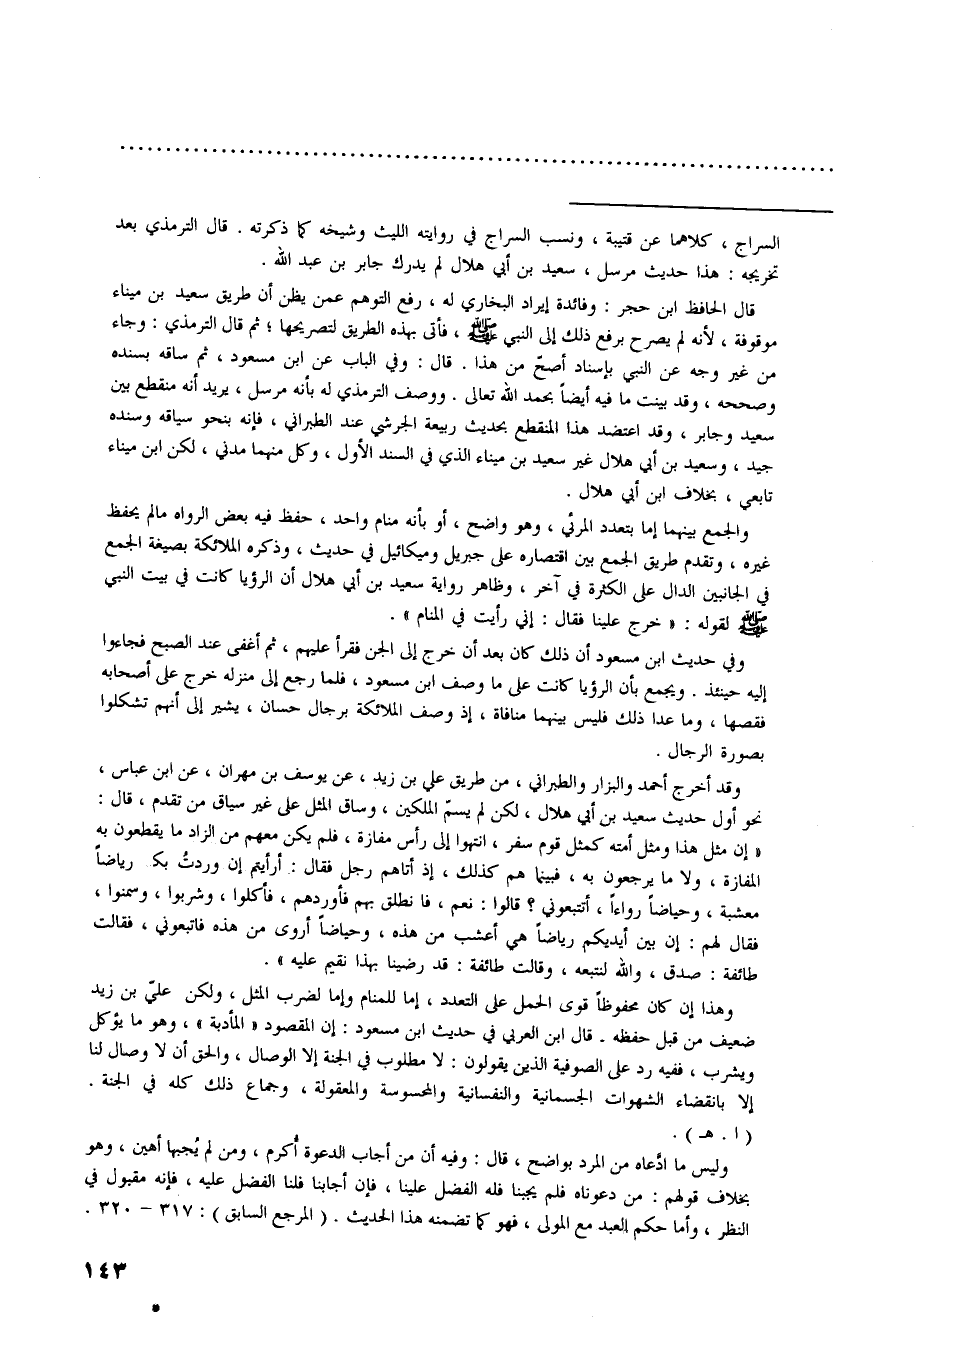 السراج ، كلاهما عن قتيبة ، ونسب السراج في روايته الليث وشيخه كما ذكرته . قال الترمذي بعد
تخريجه : هذا حديث مرسل ، سعيد بن أبي هلال لم يدرك جابر بن عبد الله .
قال الحافظ ابن حجر : وفائدة إيراد البخاري له ، رفع التوهم عمن يظن أن طريق سعيد بن ميناء
موقوفة ، لأنه لم يصرح برفع ذلك إلى النبي ﷺ ، فأتى بهذه الطريق لتصريحها ؛ ثم قال الترمذي : وجاء
من غير وجه عن النبي بإسناد أصحّ من هذا . قال : وفي الباب عن ابن مسعود ، ثم ساقه بسنده
وصححه ، وقد بينت ما فيه أيضاً بحمد الله تعالى . ووصف الترمذي له بأنه مرسل ، يريد أنه منقطع بين
سعيد وجابر ، وقد اعتضد هذا المنقطع بحديث ربيعة الجرشي عند الطبراني ، فإنه بنحو سياقه وسنده
جيد ، وسعيد بن أبي هلال غير سعيد بن ميناء الذي في السند الأول ، وكل منهما مدني ، لكن ابن ميناء
تابعي ، بخلاف ابن أبي هلال .
والجمع بينهما إما بتعدد المرئي ، وهو واضح ، أو بأنه منام واحد ، حفظ فيه بعض الرواه مالم يحفظ
غيره ، وتقدم طريق الجمع بين اقتصاره على جبريل وميكائيل في حديث ، وذكره الملائكة بصيغة الجمع
في الجانبين الدال على الكثرة في آخر ، وظاهر رواية سعيد بن أبي هلال أن الرؤيا كانت في بيت النبي
ﷺ لقوله : « خرج علينا فقال : إني رأيت في المنام » .
وفي حديث ابن مسعود أن ذلك كان بعد أن خرج إلى الجن فقرأ عليهم ، ثم أغفى عند الصبح فجاءوا
إليه حينئذ . ويجمع بأن الرؤيا كانت على ما وصف ابن مسعود ، فلما رجع إلى منزله خرج على أصحابه
فقصها ، وما عدا ذلك فليس بينهما منافاة ، إذ وصف الملائكة برجال حسان ، يشير إلى أنهم تشكلوا
بصورة الرجال .
وقد أخرج أحمد والبزار والطبراني ، من طريق علي بن زيد ، عن يوسف بن مهران ، عن ابن عباس ،
نحو أول حديث سعيد بن أبي هلال ، لكن لم يسمّ الملكين ، وساق المثل على غير سياق من تقدم ، قال :
« إن مثل هذا ومثل أمته كمثل قوم سفر ، انتهوا إلى رأس مفازة ، فلم يكن معهم من الزاد ما يقطعون به
المفازة ، ولا ما يرجعون به ، فبينما هم كذلك ، إذ أتاهم رجل فقال : أرأيتم إن وردتُ بكـ رياضاً
معشبة ، وحياضاً رواءاً ، أتتبعوني ؟ قالوا : نعم ، فا نطلق بهم فأوردهم ، فأكلوا ، وشربوا ، وسمنوا ،
فقال لهم : إن بين أيديكم رياضاً هي أعشب من هذه ، وحياضاً أروى من هذه فاتبعوني ، فقالت
طائفة : صدق ، والله لنتبعه ، وقالت طائفة : قد رضينا بهذا نقيم عليه » .
وهذا إن كان محفوظاً قوى الحمل على التعدد ، إما للمنام وإما لضرب المثل ، ولكن عليّ بن زيد
ضعيف من قبل حفظه . قال ابن العربي في حديث ابن مسعود : إن المقصود « المأدبة » ، وهو ما يؤكل
ويشرب ، ففيه رد على الصوفية الذين يقولون : لا مطلوب في الجنة إلا الوصال ، والحق أن لا وصال لنا
إلا بانقضاء الشهوات الجسمانية والنفسانية والمحسوسة والمعقولة ، وجماع ذلك كله في الجنة .
( ا . هـ ) .
وليس ما ادَّعاه من المرد بواضح ، قال : وفيه أن من أجاب الدعوة أكرم ، ومن لم يُجبها أهين ، وهو
بخلاف قولهم : من دعوناه فلم يجبنا فله الفضل علينا ، فإن أجابنا فلنا الفضل عليه ، فإنه مقبول في
النظر ، وأما حكم العبد مع المولى ، فهو كما تضمنه هذا الحديث . ( المرجع السابق ) : ٣١٧ - ٣٢٠ .
١٤٣